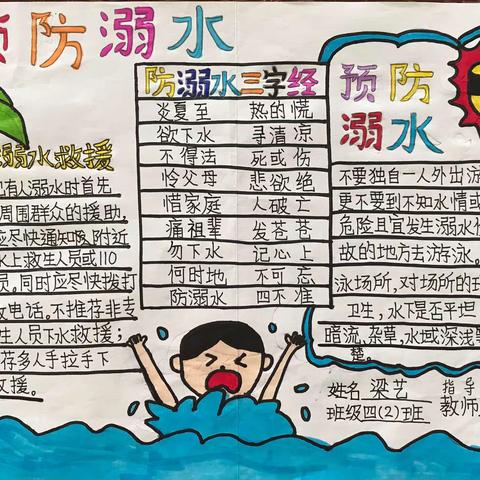 预防溺水
溺水救援
有人溺水时首先
周围群众的援助,
应尽快通知附近
水上救生人员或110
员,同时应尽快拨打
电话。不推荐非专
生人员下水救援;
荐多人手拉手下
救援。
防溺水三字经
炎夏至 热的慌
欲下水 寻清凉
不得法 死或伤
怜父母 悲欲绝
惜家庭 人破亡
痛祖辈 发苍苍
勿下水 记心上
何时地 不可忘
防溺水 四不准
预防
溺水
不要独自一人外出游
更不要到不知水情或
危险且宜发生溺水伤
故的地方去游泳。
泳场所,对场所的环
卫生,水下是否平坦
暗流、杂草,水域深浅等
楚。
姓名 梁艺
班级四(2)班
指导
教师